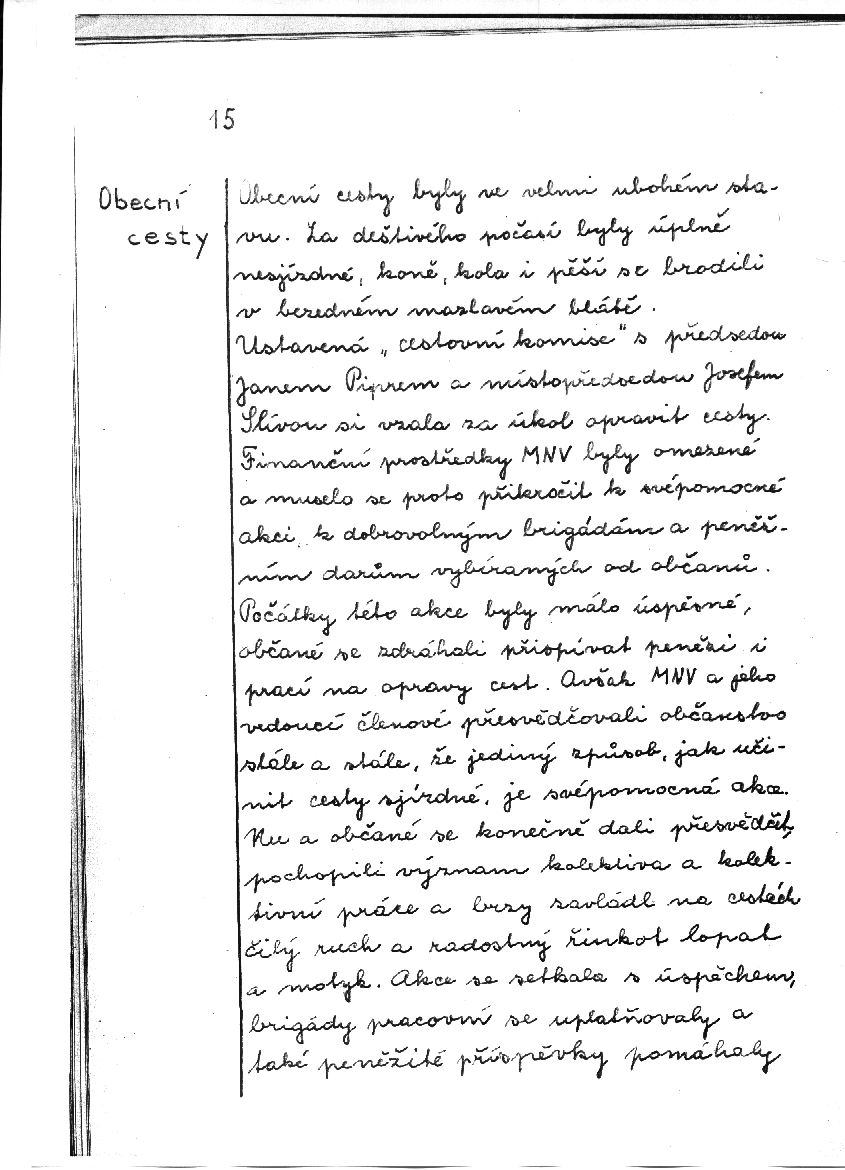 15
Obecní
cesty
Obecní cesty byly ve velmi ubohém sta-
vu. Za deštivého počasí byly úplně
nesjízdné, koně, kola i pěší se brodili
v bezedném mazlavém blátě.
Ustavená „cestovní komise" s předsedou
Janem Piprem a místopředsedou Josefem
Slívou si vzala za úkol opravit cesty.
Finanční prostředky MNV byly omezené
a muselo se proto přikročit k svépomocné
akci, k dobrovolným brigádám a peněž-
ním darům vybíraných od občanů.
Počátky této akce byly málo úspěsné,
občané se zdráhali přispívat penězi i
prací na opravy cest. Avšak MNV a jeho
vedoucí členové přesvědčovali občanstvo
stále a stále, že jediný způsob, jak uči-
nit cesty sjízdné, je svépomocná akce.
Nu a občané se konečně dali přesvědčit,
pochopili význam kolektiva a kolek-
tivní práce a brzy zavládl na cestách
čilý ruch a radostný řinkot lopat
a motyk. Akce se setkala s úspěchem,
brigády pracovní se uplatňovaly a
také peněžité příspěvky pomáhaly